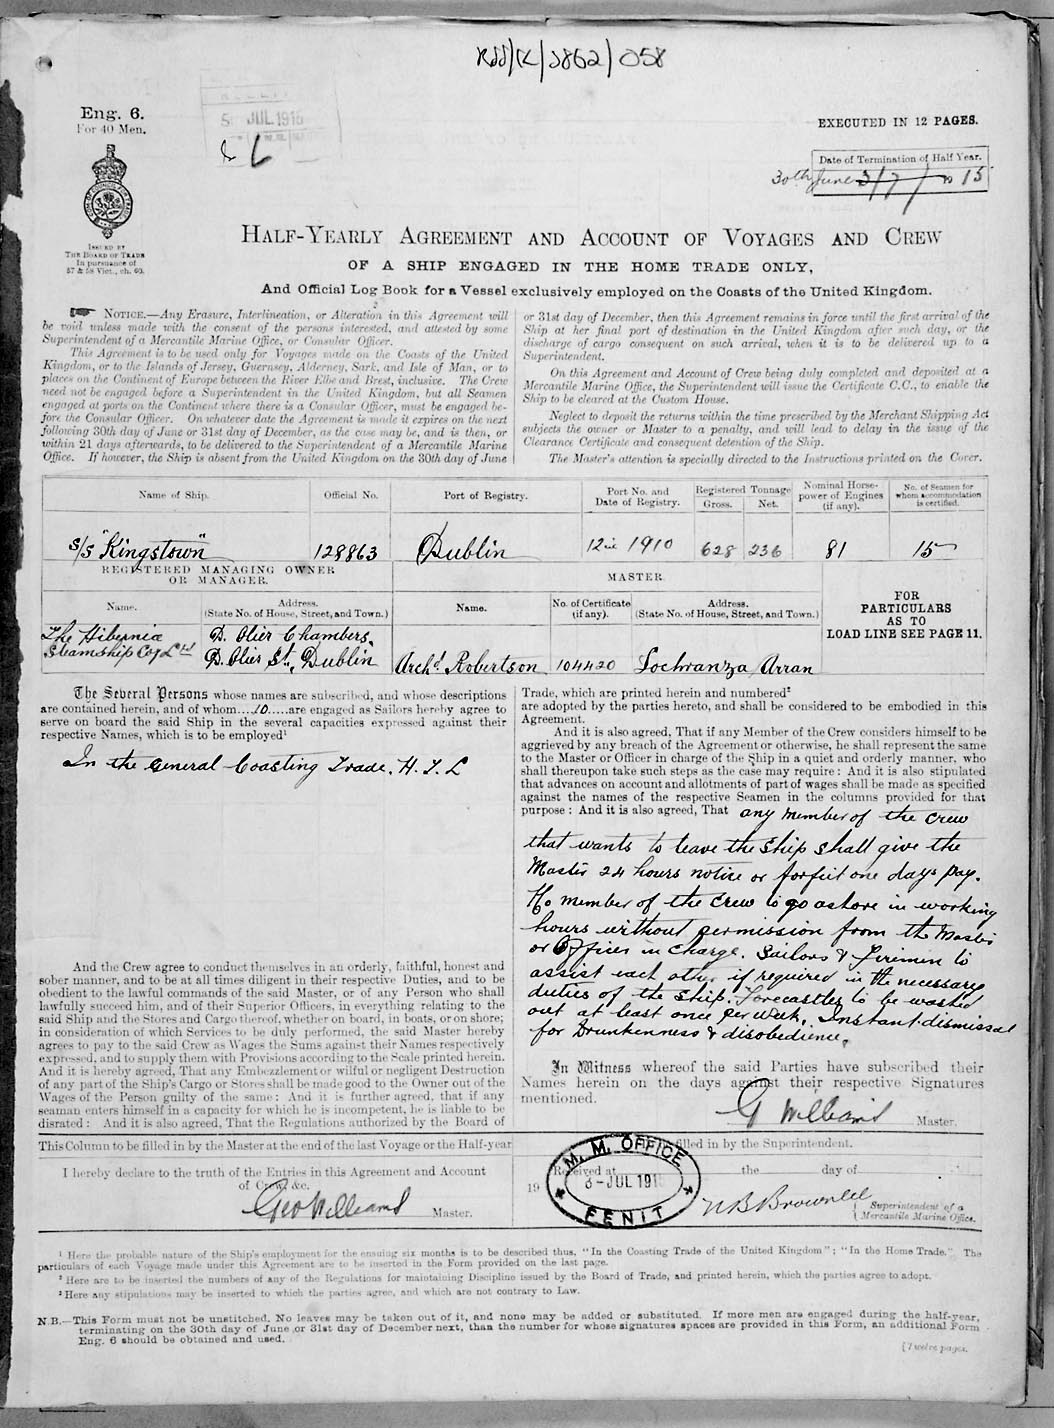 RSS/CL/3862/058
Eng. 6.
For 40 Men.
5 JUL.1915
EXECUTED IN 12 PAGES.
Date of Termination of Half Year.
30th June 3/7/ 19 15
ISSUED BY
THE BOARD OF TRADE
In pursuance of
57 & 58 Vict., ch. 60.
HALF-YEARLY AGREEMENT AND ACCOUNT OF VOYAGES AND CREW
OF A SHIP ENGAGED IN THE HOME TRADE ONLY,
And Official Log Book for a Vessel exclusively employed on the Coasts of the United Kingdom.
NOTICE.—Any Erasure, Interlineation, or Alteration in this Agreement will
be void unless made with the consent of the persons interested, and attested by some
Superintendent of a Mercantile Marine Office, or Consular Officer.
This Agreement is to be used only for Voyages made on the Coasts of the United
Kingdom, or to the Islands of Jersey, Guernsey, Alderney, Sark, and Isle of Man, or to
places on the Continent of Europe between the River Elbe and Brest, inclusive. The Crew
need not be engaged before a Superintendent in the United Kingdom, but all Seamen
engaged at ports on the Continent where there is a Consular Officer, must be engaged be-
fore the Consular Officer. On whatever date the Agreement is made it expires on the next
following 30th day of June or 31st day of December, as the case may be, and is then, or
within 21 days afterwards, to be delivered to the Superintendent of a Mercantile Marine
Office. If however, the Ship is absent from the United Kingdom on the 30th day of June
or 31st day of December, then this Agreement remains in force until the first arrival of the
Ship at her final port of destination in the United Kingdom after such day, or the
discharge of cargo consequent on such arrival, when it is to be delivered up to a
Superintendent.
On this Agreement and Account of Crew being duly completed and deposited at a
Mercantile Marine Office, the Superintendent will issue the Certificate C.C., to enable the
Ship to be cleared at the Custom House.
Neglect to deposit the returns within the time prescribed by the Merchant Shipping Act
subjects the owner or Master to a penalty, and will lead to delay in the issue of the
Clearance Certificate and consequent detention of the Ship.
The Master's attention is specially directed to the Instructions printed on the Cover.
Name of Ship. Official No. Port of Registry. Port No. and Date of Registry. Registered Tonnage Gross. Net. Nominal Horse-power of Engines (if any). No. of Seamen for whom accommodation is certified.
s/s "Kingstown" 128863 Dublin 12 in 1910 628 236 81 15
REGISTERED MANAGING OWNER
OR MANAGER.
MASTER
FOR
PARTICULARS
AS TO
LOAD LINE SEE PAGE 11.
Name. Address. (State No. of House, Street, and Town.) Name. No. of Certificate (if any). Address. (State No. of House, Street, and Town.)
The Hibernia D. Olier Chambers,
Steamship Coy Ltd D. Olier St., Dublin Archd. Robertson 104420 Lochranza Arran
The Several Persons whose names are subscribed, and whose descriptions
are contained herein, and of whom....10.....are engaged as Sailors hereby agree to
serve on board the said Ship in the several capacities expressed against their
respective Names, which is to be employed¹
In the General Coasting Trade. H.T.L
And the Crew agree to conduct themselves in an orderly, faithful, honest and
sober manner, and to be at all times diligent in their respective Duties, and to be
obedient to the lawful commands of the said Master, or of any Person who shall
lawfully succeed him, and of their Superior Officers, in everything relating to the
said Ship and the Stores and Cargo thereof, whether on board, in boats, or on shore;
in consideration of which Services to be duly performed, the said Master hereby
agrees to pay to the said Crew as Wages the Sums against their Names respectively
expressed, and to supply them with Provisions according to the Scale printed herein.
And it is hereby agreed, That any Embezzlement or wilful or negligent Destruction
of any part of the Ship's Cargo or Stores shall be made good to the Owner out of the
Wages of the Person guilty of the same: And it is further agreed, that if any
seaman enters himself in a capacity for which he is incompetent, he is liable to be
disrated: And it is also agreed, That the Regulations authorized by the Board of
Trade, which are printed herein and numbered²
are adopted by the parties hereto, and shall be considered to be embodied in this
Agreement.
And it is also agreed, That if any Member of the Crew considers himself to be
aggrieved by any breach of the Agreement or otherwise, he shall represent the same
to the Master or Officer in charge of the Ship in a quiet and orderly manner, who
shall thereupon take such steps as the case may require: And it is also stipulated
that advances on account and allotments of part of wages shall be made as specified
against the names of the respective Seamen in the columns provided for that
purpose: And it is also agreed, That any member of the crew
that wants to leave the ship shall give the
Master 24 hours notice or forfeit one days pay.
No member of the crew to go ashore in working
hours without permission from the Master
or Officer in charge. Sailors & Firemen to
assist each other if required in the necessary
duties of the ship. Forecastles to be washed
out at least once per week. Instant dismissal
for Drunkenness & disobedience.
In Witness whereof the said Parties have subscribed their
Names herein on the days against their respective Signatures
mentioned.
G Williams Master.
This Column to be filled in by the Master at the end of the last Voyage or the Half-year
filled in by the Superintendent.
I hereby declare to the truth of the Entries in this Agreement and Account
of Crew, &c.
Geo Williams Master.
Received at the day of
19
M. M. OFFICE
3-JUL 1915
FENIT
N B Brownlee
Superintendent of a
Mercantile Marine Office.
¹ Here the probable nature of the Ship's employment for the ensuing six months is to be described thus, "In the Coasting Trade of the United Kingdom"; "In the Home Trade." The
particulars of each Voyage made under this Agreement are to be inserted in the Form provided on the last page.
² Here are to be inserted the numbers of any of the Regulations for maintaining Discipline issued by the Board of Trade, and printed herein, which the parties agree to adopt.
³ Here any stipulations may be inserted to which the parties agree, and which are not contrary to Law.
N.B.—This Form must not be unstitched. No leaves may be taken out of it, and none may be added or substituted. If more men are engaged during the half-year,
terminating on the 30th day of June or 31st day of December next, than the number for whose signatures spaces are provided in this Form, an additional Form
Eng. 6 should be obtained and used.
[Twelve pages.